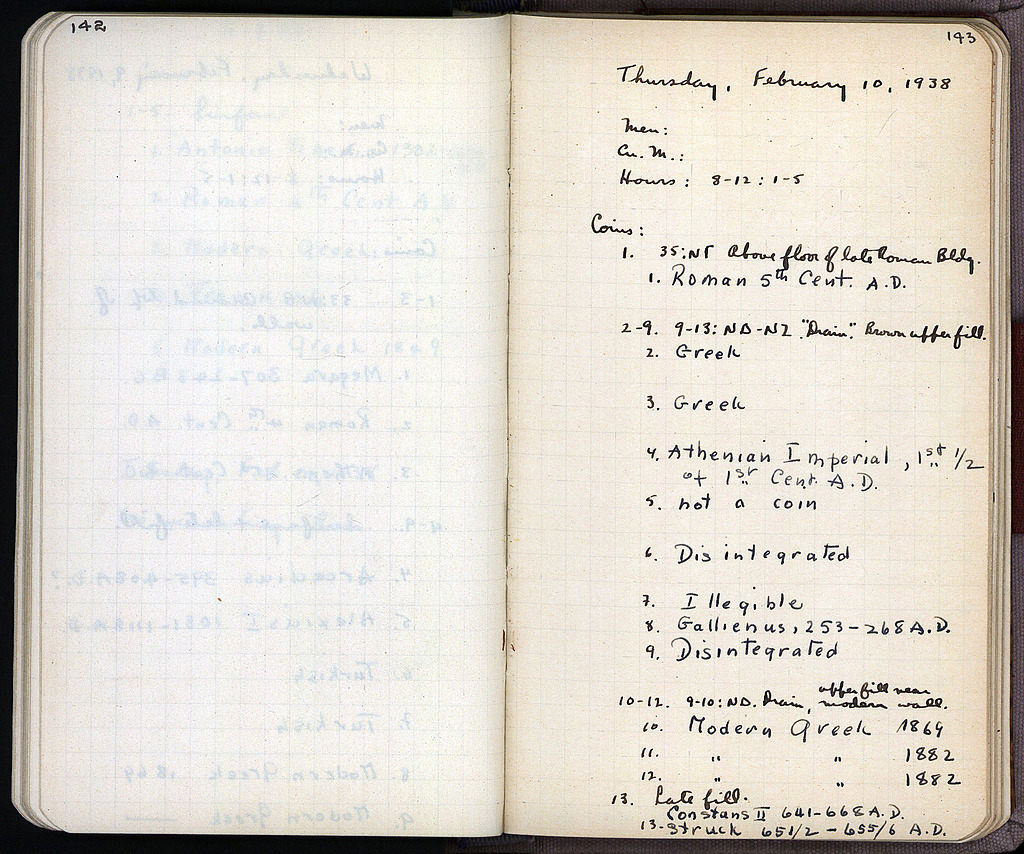 142
143
Thursday, February 10, 1938
Men:
Cu. M.:
Hours: 8-12: 1-5
Coins:
1. 35:NΓ Above floor of late Roman Bldg.
1. Roman 5th Cent. A.D.
2-9. 9-13: ND-NZ "Drain". Brown upper fill.
2. Greek
3. Greek
4. Athenian Imperial, 1st 1/2
of 1st Cent. A.D.
5. not a coin
6. Disintegrated
7. Illegible
8. Gallienus, 253-268 A.D.
9. Disintegrated
upper fill near
10-12. 9-10: ND. Drain, modern wall.
10. Modern Greek 1869
11. " " 1882
12. " " 1882
13. Late fill.
Constans II 641-668 A.D.
13. Struck 651/2 - 655/6 A.D.